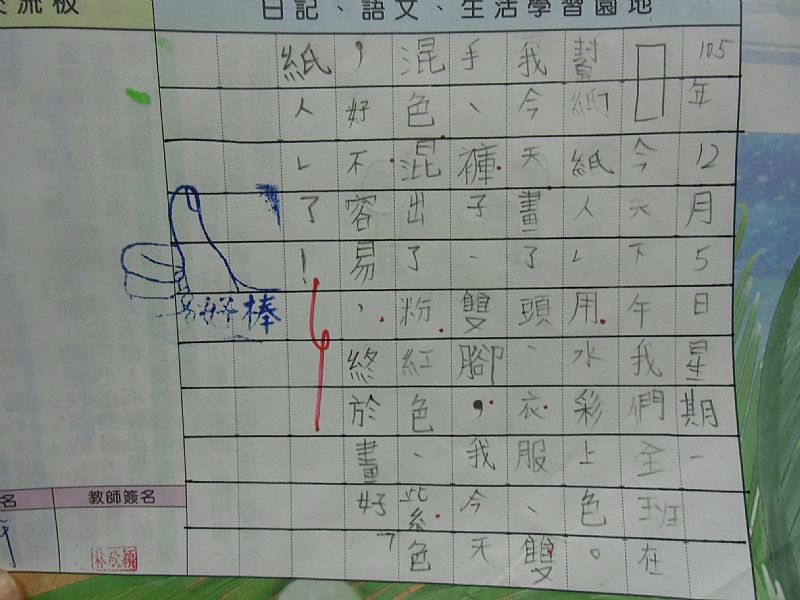 流板
日記、語文、生活學習園地
105年12月5日星期一
今天下午我們全班在
幫「紙人」用水彩上色。
我今天畫了頭、衣服、雙
手、褲子、雙腳,我今天
混色混出了粉紅色、紫色
,好不容易,終於畫好「
紙人」了!
好棒
名
教師簽名